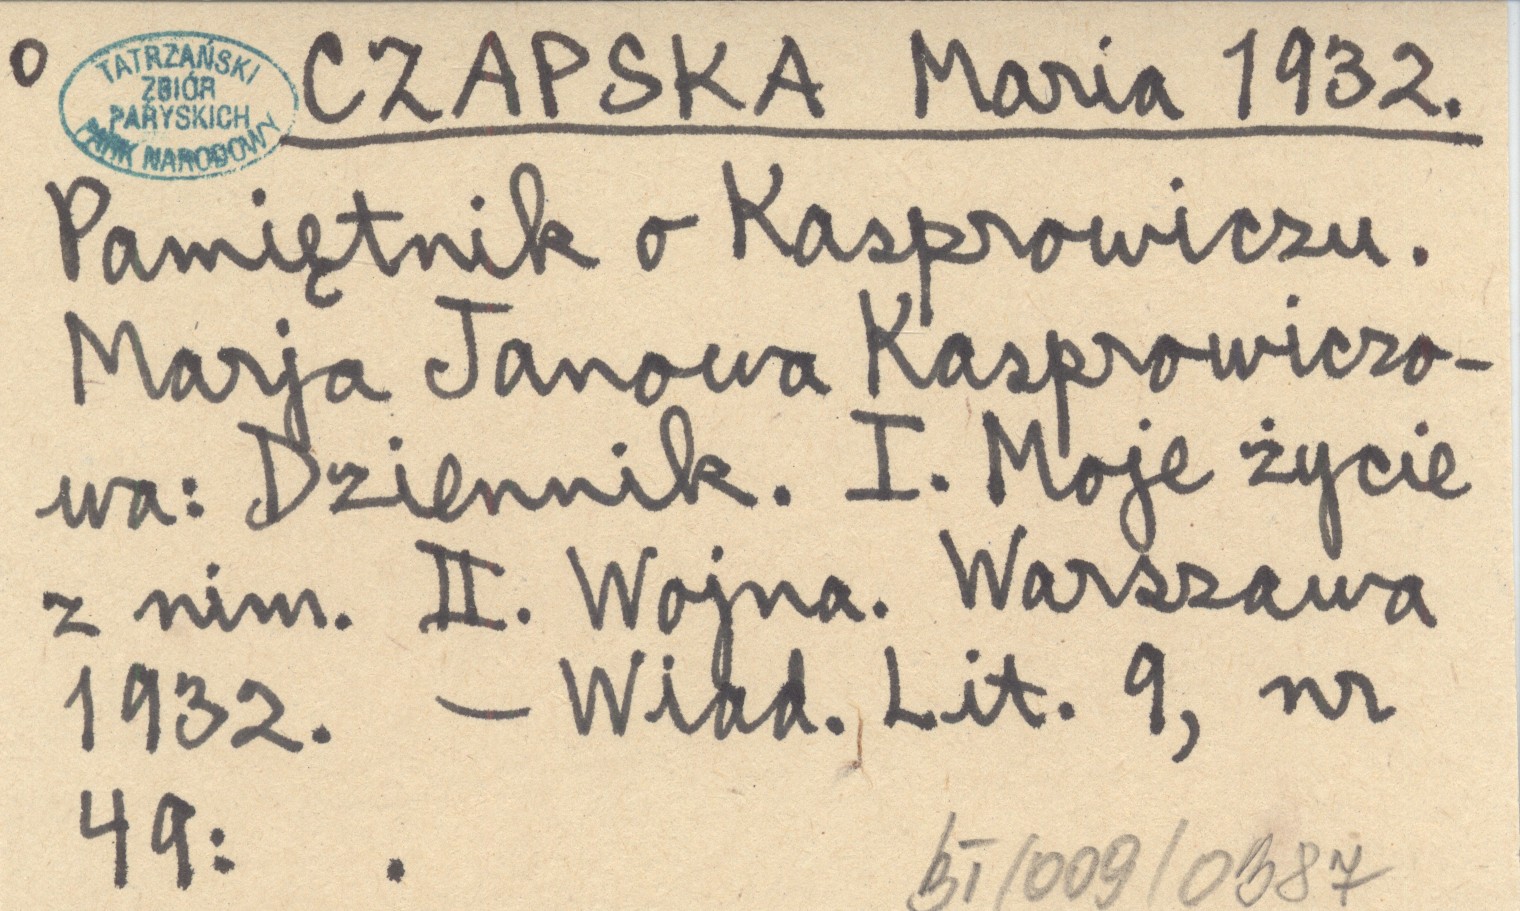 o
TATRZAŃSKI
ZBIÓR
PARYSKICH
PARK NARODOWY
CZAPSKA Maria 1932.
Pamiętnik o Kasprowiczu.
Marja Janowa Kasprowiczo-
wa: Dziennik. I. Moje życie
z nim. II. Wojna. Warszawa
1932. — Wiad. Lit. 9, nr
49: .
/009/0387